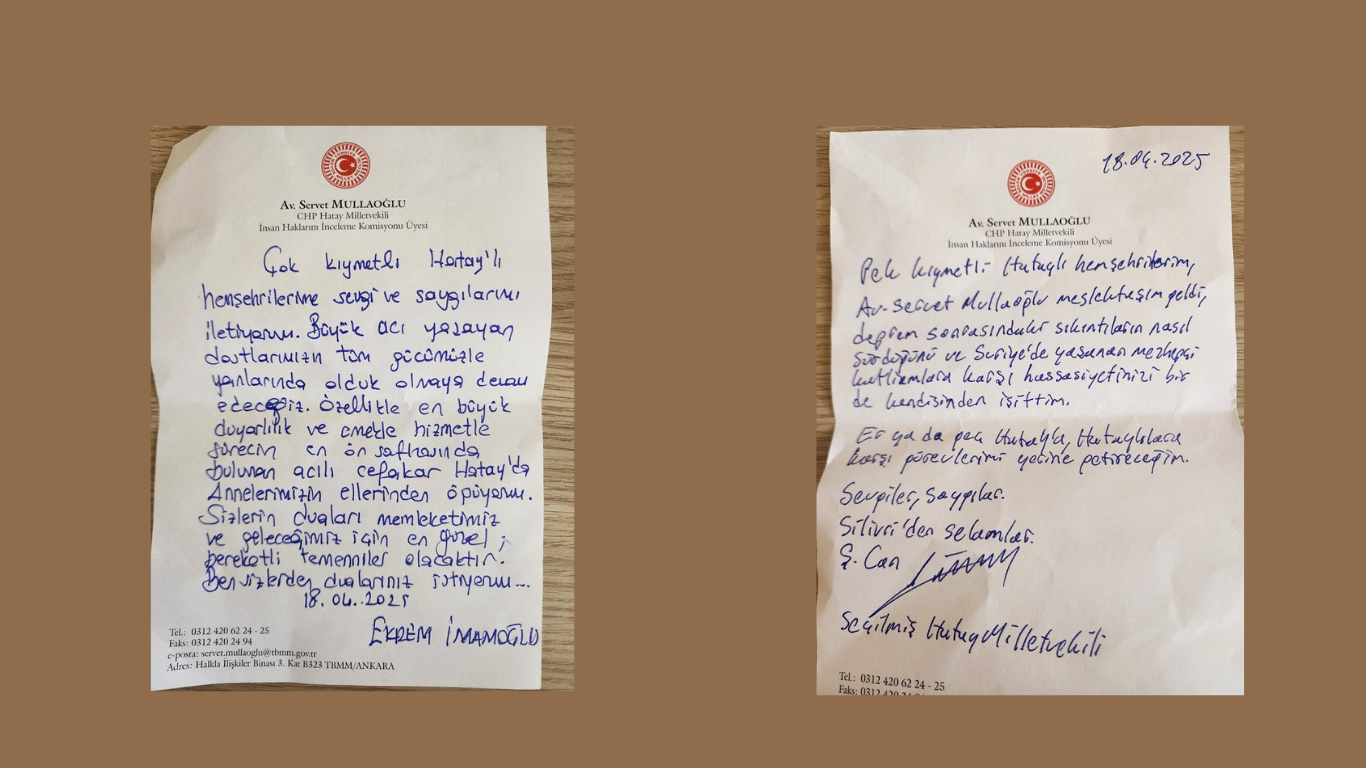 Av. Servet MULLAOĞLU
CHP Hatay Milletvekili
İnsan Haklarını İnceleme Komisyonu Üyesi
Çok kıymetli Hatay'lı
hemşehrilerime sevgi ve saygılarımı
iletiyorum. Büyük acı yaşayan
dostlarımızın tüm gücümüzle
yanlarında olduk olmaya devam
edeceğiz. Özellikle en büyük
duyarlılık ve emekle hizmetle
sürecin en ön safhasında
bulunan acılı cefakar Hatay'da
Annelerimizin ellerinden öpüyorum.
Sizlerin duaları memleketimiz
ve geleceğimiz için en güzel,
bereketli temenniler olacaktır.
Ben sizlerden dualarınız istiyorum...
18.04.2025
EKREM İMAMOĞLU
Tel.: 0312 420 62 24 - 25
Faks: 0312 420 24 94
e-posta: servet.mullaoglu@tbmm.gov.tr
Adres: Halkla İlişkiler Binası 3. Kat B323 TBMM/ANKARA
18.04.2025
Av. Servet MULLAOĞLU
CHP Hatay Milletvekili
İnsan Haklarını İnceleme Komisyonu Üyesi
Pek kıymetli Hataylı hemşehrilerim,
Av. Servet Mullaoğlu meslektaşım geldi,
deprem sonrasındaki sıkıntıların nasıl
sürdüğünü ve Suriye'de yaşanan mezhepçi
katliamlara karşı hassasiyetinizi bir
de kendisinden işittim.
Er ya da geç Hatay'a, Hataylılara
karşı görevlerimi yerine getireceğim.
Sevgiler, saygılar.
Silivri'den selamlar.
Ş. Can
Seçilmiş Hatay Milletvekili
Tel.: 0312 420 62 24 - 25
Faks: 0312 420 24